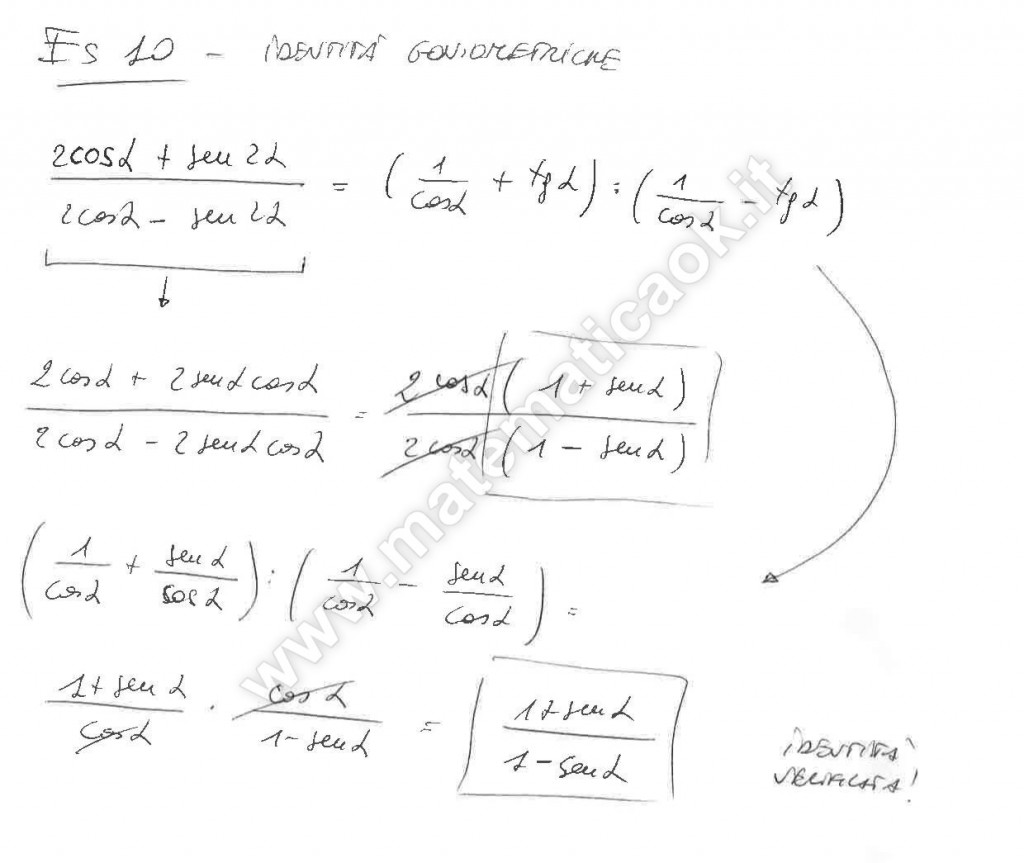 Es 10 - IDENTITÀ GONIOMETRICHE
(2cosα + sen 2α) / (2cosα - sen 2α) = (1/cosα + tgα) : (1/cosα - tgα)
(2cosα + 2senαcosα) / (2cosα - 2senαcosα) = 2cosα(1 + senα) / 2cosα(1 - senα)
(1/cosα + senα/cosα) : (1/cosα - senα/cosα) =
(1+senα)/cosα · cosα/(1-senα) = (1+senα)/(1-senα)
IDENTITÀ
VERIFICATA!
www.matematicaok.it